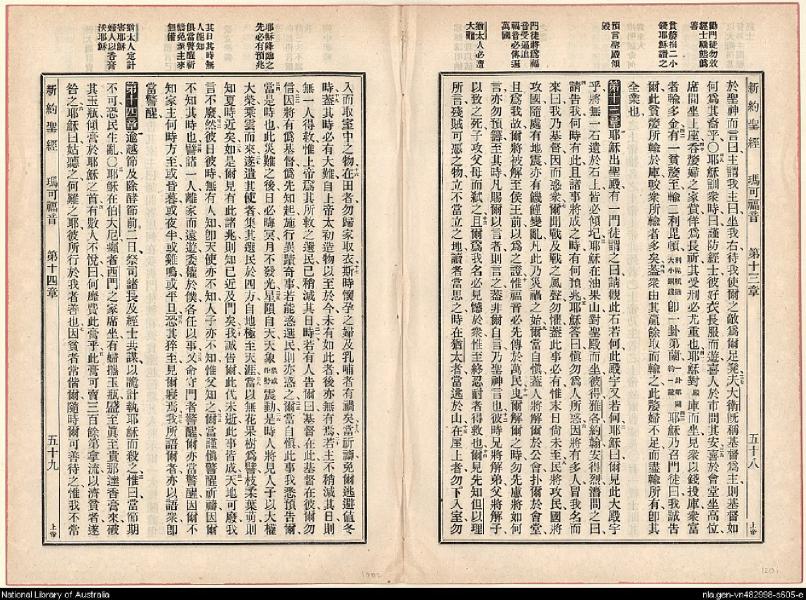 勸門徒勿效
經士驕態偽
善
貧嫠捐二小
錢耶穌讚之
預言聖殿傾
毀
門徒將為福
音受逼迫
福音必傳遍
萬國
猶太人必遭
大難
新約聖經 瑪可福音 第十三章 五十八 上帝
於聖神而言曰主謂我主曰坐我右待我使爾之敵為爾足凳夫大衛既稱基督為主則基督如
何為其裔乎○耶穌訓眾時曰謹防經士彼好衣長服而遊喜人於市問其安喜於會堂坐高位
席間坐上座吞嫠婦之家貲佯為長祈其受刑必尤重也耶穌對庫而坐見眾以錢投庫眾富
者輸多金有一貧嫠至輸二利毘頓 即一卦第蘭 耶穌乃召門徒曰我誠告
爾此貧嫠所輸於庫較眾所輸者多矣蓋眾由其贏餘取而輸之此嫠婦不足而盡輸所有即其
全業也
第十三章耶穌出聖殿有一門徒謂之曰請觀此石若何此殿宇又若何耶穌曰爾見此大殿宇
乎將無一石遺於石上皆必傾圮耶穌在油果山對聖殿而坐彼得雅各約翰安得烈潛問之曰
請告我何時有此且諸事將成之時有何預兆耶穌答曰慎勿為人所惑因將有多人冒我名而
來曰我乃基督因而惑眾爾聞戰及戰之風聲勿懼蓋此事必有惟末日尚未至民將攻民國將
攻國隨處有地震亦有饑饉變亂凡此乃災禍之始爾當自慎蓋人將解爾於公會扑爾於會堂
且為我故爾將被解至侯王前以為之證惟福音必先傳於萬民曳爾解爾之時勿先慮將如何
言亦勿預籌至其時凡賜爾以言者則言之蓋非爾自言乃聖神言也彼時兄將解弟父將解子
以致之死子攻父母而弒之且爾為我名必見憾於眾惟至終忍耐者得救也爾見先知但以理
所言殘賊可惡之物立不當立之地讀者當思之時在猶太者當逃於山在屋上者勿下入室勿
耶穌降臨之
先必有預兆
其日其時無
人能知
俱當警醒祈
禱免無主來
無備
猶太人定計
害耶穌
婦人以香膏
沃耶穌
入而取室中之物在田者勿歸家取衣斯時懷孕之婦及乳哺者有禍矣當祈禱免爾逃避值冬
時蓋其時必有大難自上帝太初造物以至於今未有如此者後亦無有焉若主不稍減其日則
無一人得救惟上帝為其所救之選民已稍減其日時若有人告爾曰基督在此基督在彼爾勿
信因將有偽基督偽先知起施行異蹟奇事若能惑選民則亦惑之爾當自慎此事我悉預告爾
當是時也此災難之後日必晦冥月不發光星隕自天天象 震動是時人將見人子以大權
大榮乘雲而來遂遣其使者集其選民於四方自地極至天涯當以無花果樹為譬枝柔葉萌則
知夏時近矣如是爾見有此諸兆則知已近及門矣我誠告爾此代未逝此事皆成天地可廢我
言不廢然彼日彼時無有人知即天使亦不知人子亦不知惟父知之爾當謹慎警醒祈禱因爾
不知其時也譬諸一人離家而遠遊委權於僕各任以事又命守門者警醒爾亦當警醒因爾不
知家主何時方至或昏暮或夜半或雞鳴或平旦恐其猝至見爾寢焉我所語爾者亦以語眾即
當警醒
第十四章逾越節及除酵節前二日祭司諸長及經士共謀以詭計執耶穌而殺之惟曰當節期
不可恐民生亂○耶穌在伯大尼癩者西門之家席坐有婦攜玉瓶盛至真至貴那達香膏來破
其玉瓶傾膏於耶穌之首有數人不悅曰何靡費此膏乎此膏可賣三百餘第拿流以濟貧者遂
咎之耶穌曰姑聽之何難之耶彼所行於我者善也因貧者常偕爾隨時爾可善待之惟我不常
新約聖經 瑪可福音 第十四章 五十九 上帝
National Library of Australia
nla.gen-vn482998-s605-e